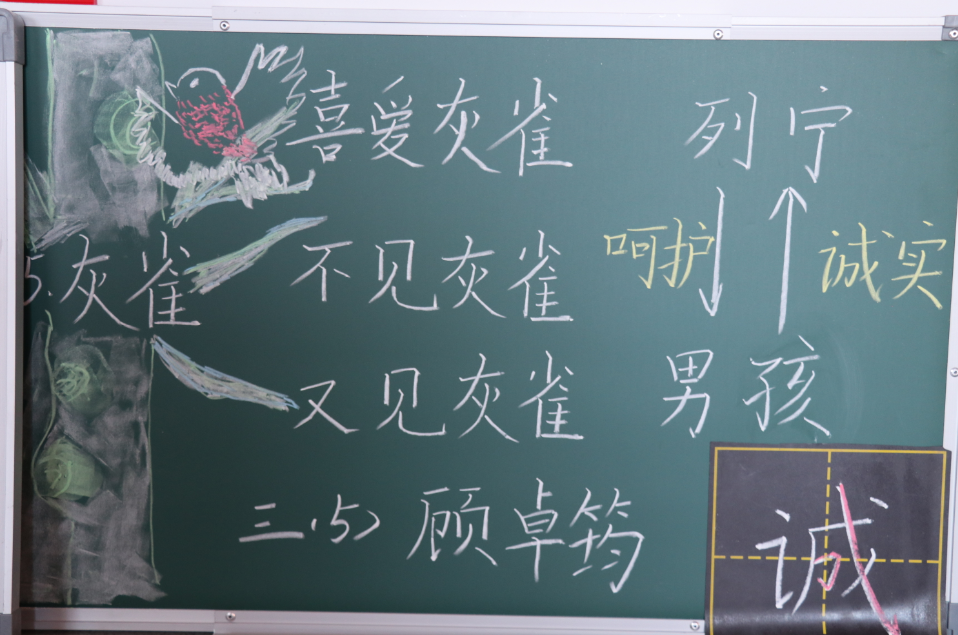 喜爱灰雀 列宁
5.灰雀 不见灰雀 呵护 诚实
又见灰雀 男孩
三(5) 顾卓筠
诚